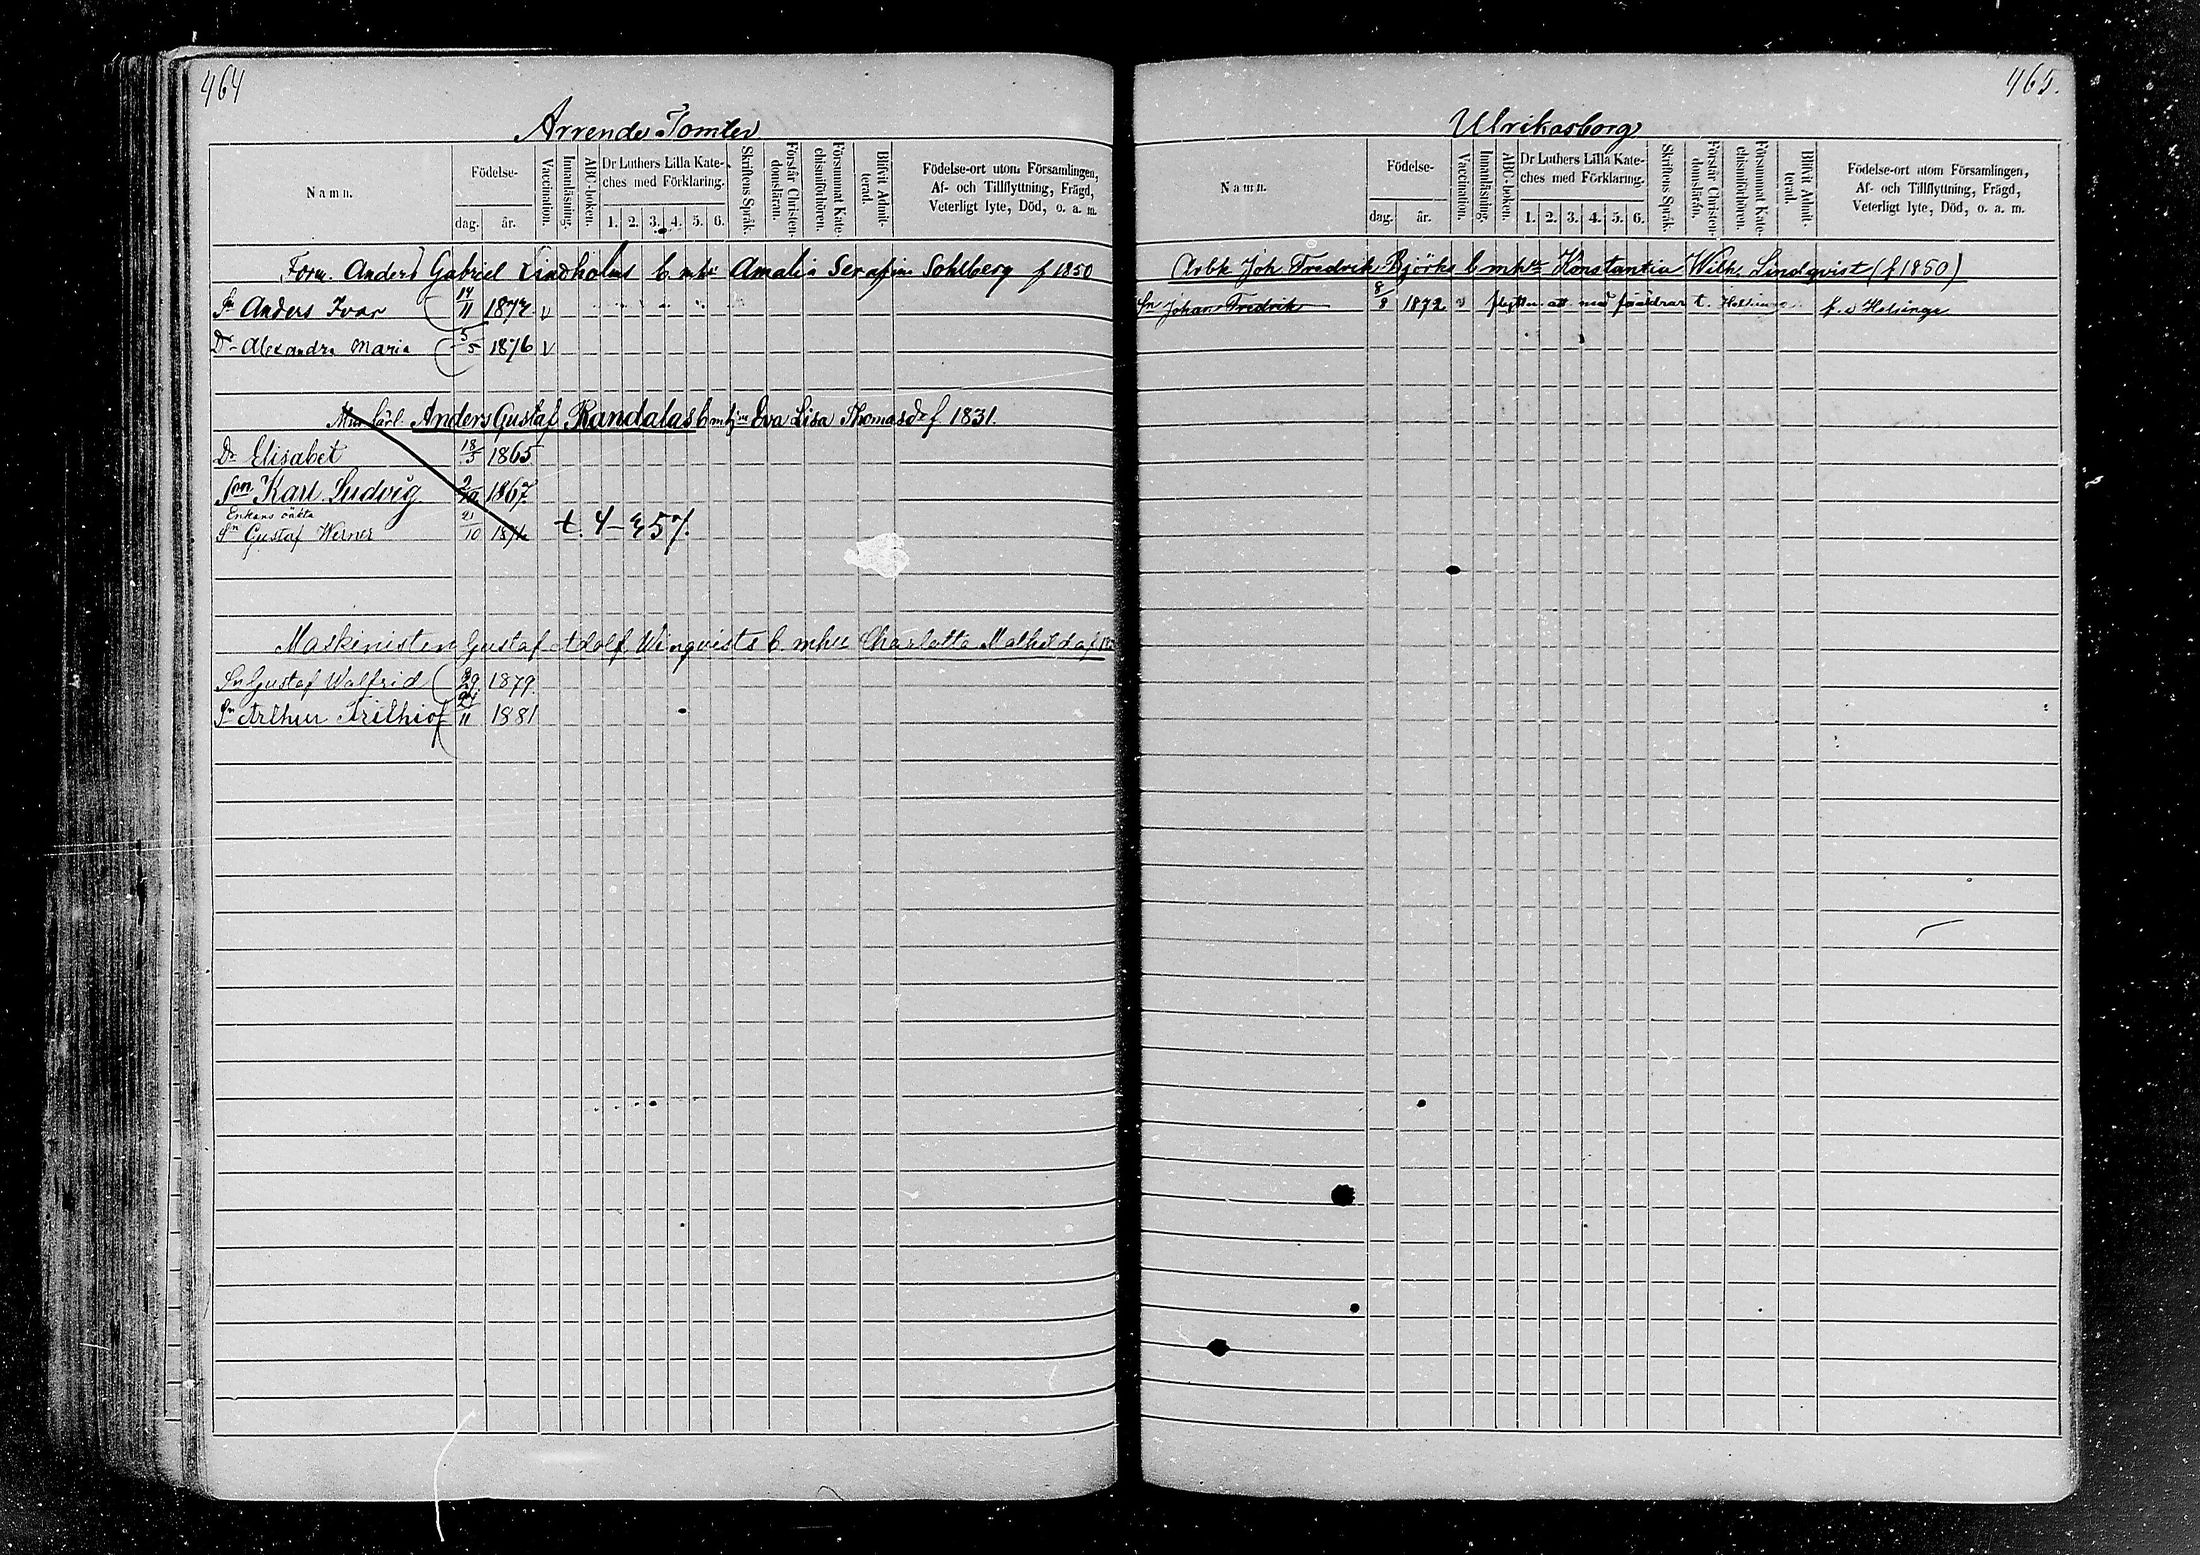 464
Arrende Tomter
Namn.
Födelse-
dag.
år.
Vaccination.
Innanläsning.
ABC-boken.
Dr Luthers Lilla Kate-
ches med Förklaring.
1. 2. 3. 4. 5. 6.
Skriftens Språk.
Förstår Christen-
domsläran.
Försummat Kate-
chismiförhören.
Blifvit Admit-
terad.
Födelse-ort utom Församlingen,
Af- och Tillflyttning, Frägd,
Veterligt lyte, Död, o. a. m.
Anders Gabriel Lindholms b. m. Amalia Serafina Sohlberg f 1850
Sn Anders Ivar 14/11 1874 v
Dr Alexandra Maria 5/5 1876 v
Anders Gustaf Randalas b m Eva Lisa Thomasdr f 1831.
Dr Elisabet 18/3 1865
Son Karl Ludvig 1867
Enkans oäkta
Sn Gustaf Werner 21/10
t. 4-457.
Maskinisten Gustaf Adolf Winqvists b. m. hu Charlotta Mathilda f
Sn Gustaf Walfrid 1879.
Sn Arthur Frithiof 11 1881
465.
Ulrikasborg
Namn.
Födelse-
dag.
år.
Vaccination.
Innanläsning.
ABC-boken.
Dr Luthers Lilla Kate-
ches med Förklaring.
1. 2. 3. 4. 5. 6.
Skriftens Språk.
Förstår Christen-
domsläran.
Försummat Kate-
chismiförhören.
Blifvit Admit-
terad.
Födelse-ort utom Församlingen,
Af- och Tillflyttning, Frägd,
Veterligt lyte, Död, o. a. m.
Arbk Joh. Fredrik Björks b m hu Konstantia Wilh. Lindqvist (f 1850)
Sn Johan Fredrik 8/8 1872 v flyttn. att med föräldrar t. Helsinge f. i Helsinge